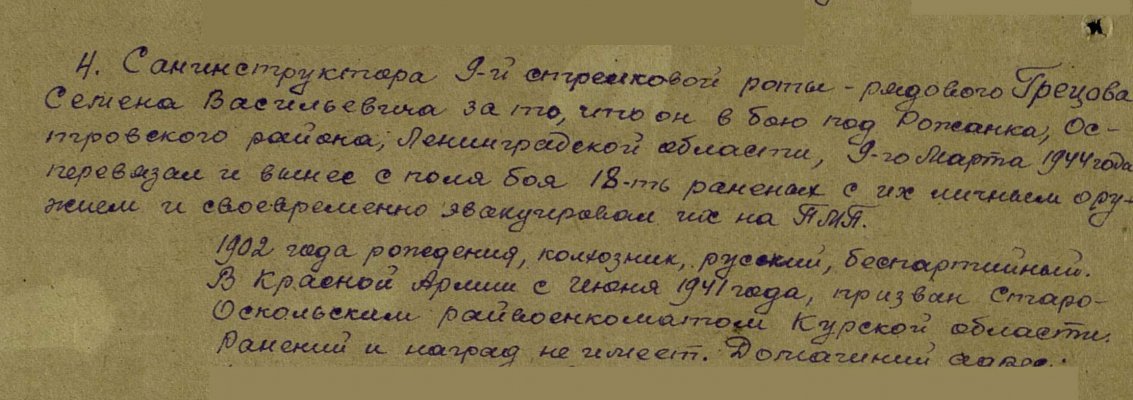 4. Санинструктора 9-й стрелковой роты - рядового Грецова
Семена Васильевича за то, что он в бою под Рожанка, Ос-
тровского района, Ленинградской области, 9-го Марта 1944 года
перевязал и вынес с поля боя 18-ть раненых с их личным ору-
жием и своевременно эвакуировал их на ПМП.
1902 года рождения, колхозник, русский, беспартийный.
В Красной Армии с Июня 1941 года, призван Старо-
Оскольским райвоенкоматом Курской области.
Ранений и наград не имеет. Домашний адрес: